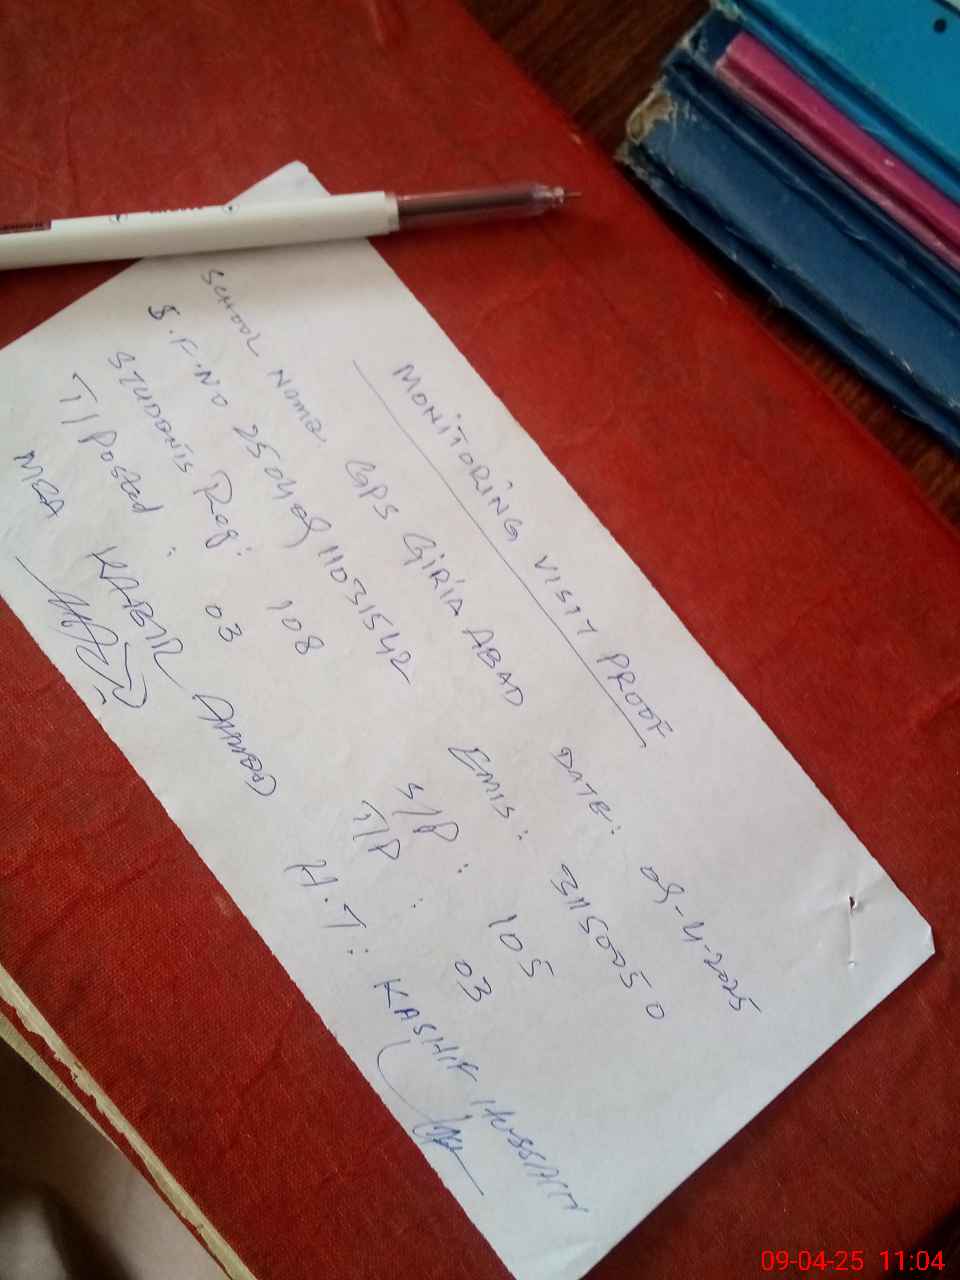 MONITORING VISIT PROOF
SCHOOL Name GPS GIRIA ABAD DATE: 09-4-2025
S.F.NO 25040911031542 EMIS: 31150050
STUDENTS Reg: 108 S/P: 105
T/Posted: 03 T/P: 03
MEA KABIR AHMAD H.T: KASHIF HUSSAIN
09-04-25 11:04